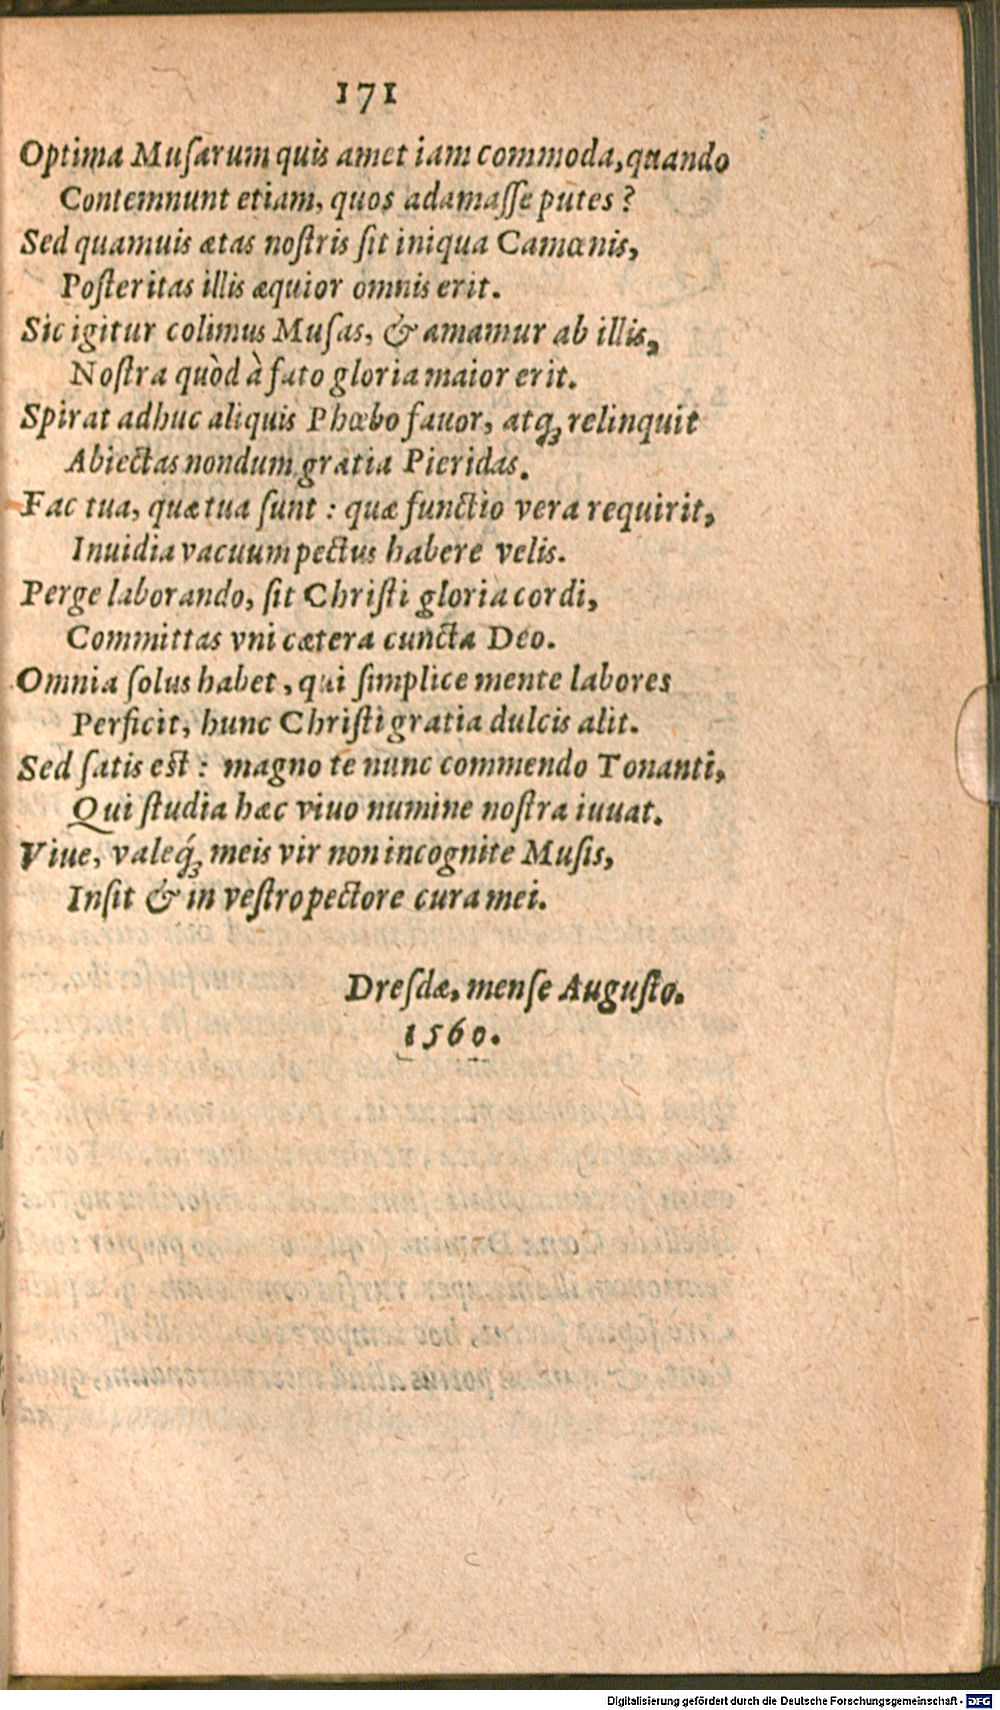 171
Optima Muſarum quis amet iam commoda, quando
Contemnunt etiam, quos adamaſſe putes?
Sed quamuis ætas noſtris ſit iniqua Camœnis,
Poſteritas illis æquior omnis erit.
Sic igitur colimus Muſas, & amamur ab illis,
Noſtra quòd à fato gloria maior erit.
Spirat adhuc aliquis Phœbo fauor, atq́ꝫ relinquit
Abiectas nondum gratia Pieridas.
Fac tua, quæ tua ſunt: quæ functio vera requirit,
Inuidia vacuum pectus habere velis.
Perge laborando, ſit Chriſti gloria cordi,
Committas vni cætera cuncta Deo.
Omnia ſolus habet, qui ſimplice mente labores
Perficit, hunc Chriſti gratia dulcis alit.
Sed ſatis eſt: magno te nunc commendo Tonanti,
Qui ſtudia hæc viuo numine noſtra iuuat.
Viue, valeq́ꝫ meis vir non incognite Muſis,
Inſit & in veſtro pectore cura mei.
Dreſdæ, menſe Auguſto.
1560.
Digitalisierung gefördert durch die Deutsche Forschungsgemeinschaft - DFG